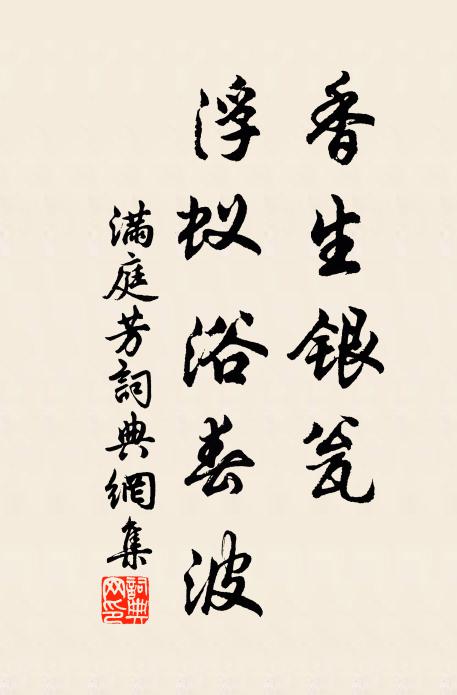 香生银瓮
浮蚁浴春波
满庭芳詞典網集
詞典网印